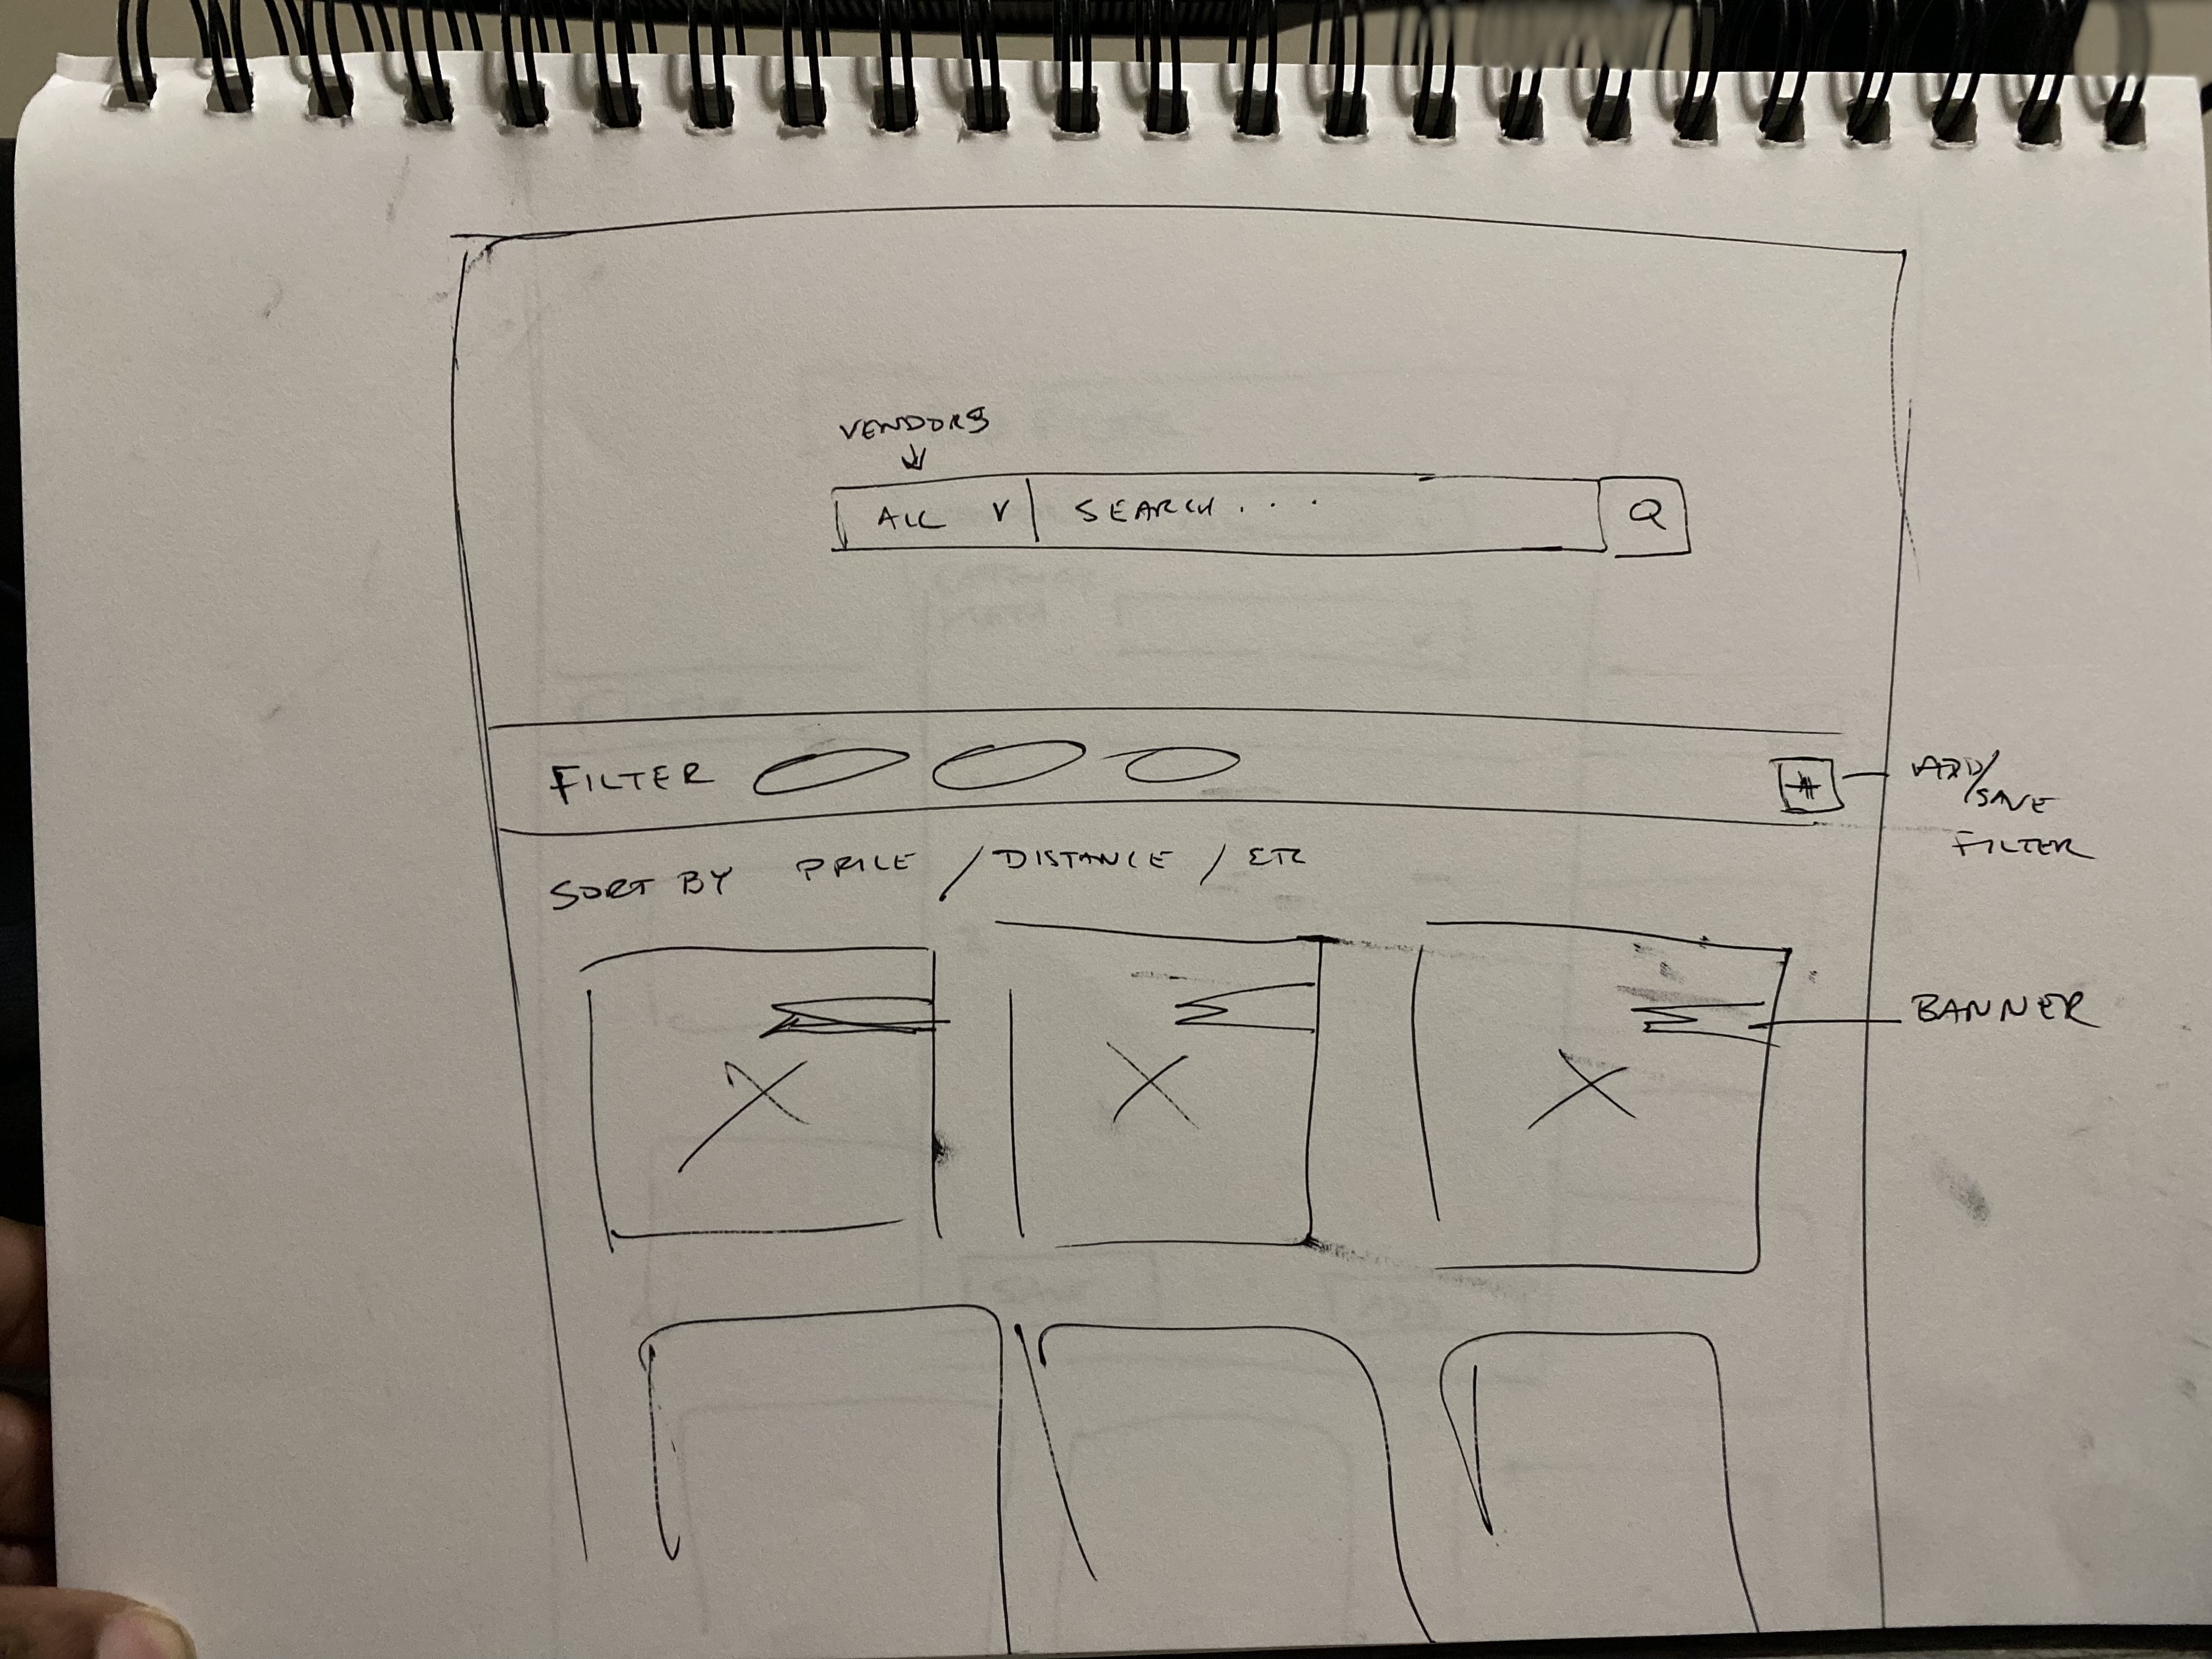 VENDORS
ALL V SEARCH...
FILTER
ADD/
SAVE
FILTER
SORT BY PRICE / DISTANCE / ETC
BANNER